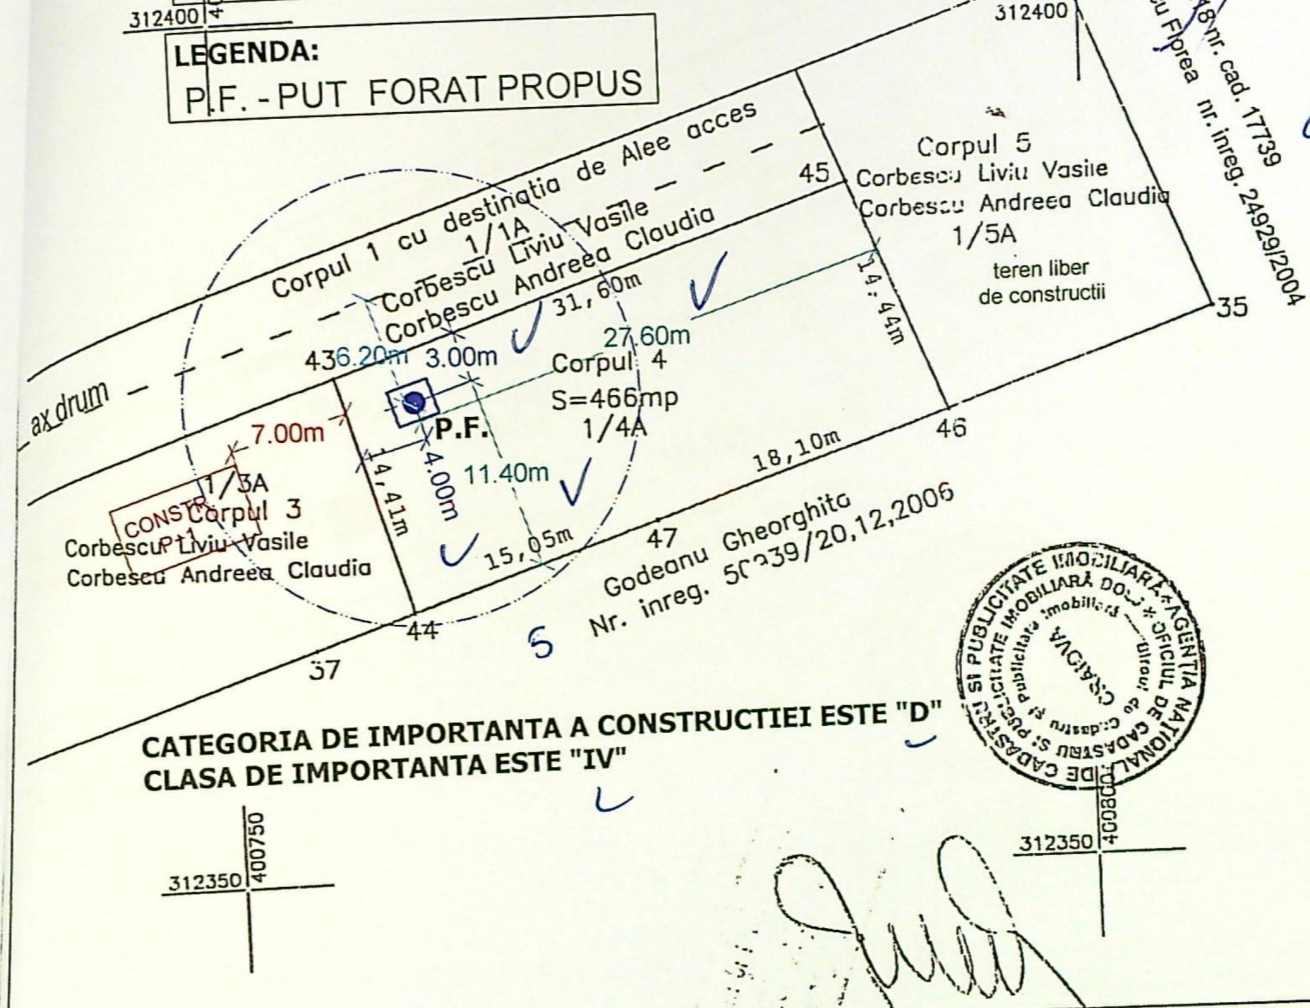 312400
LEGENDA:
P.F. - PUT FORAT PROPUS
312400
18 nr. cad. 17739
cu Florea nr. inreg. 24929/2004
Corpul 1 cu destinatia de Alee acces
1/1A
Corbescu Liviu Vasile
Corbescu Andreea Claudia
45
Corpul 5
Corbescu Liviu Vasile
Corbescu Andreea Claudia
1/5A
teren liber
de constructii
35
31,60m
14,44m
27.60m
43
6.20m
3.00m
Corpul 4
S=466mp
1/4A
ax drum
P.F.
7.00m
4.00m
11.40m
14,41m
46
18,10m
1/3A
CONSTR.
Corpul 3
P+1
Corbescu Liviu Vasile
Corbescu Andreea Claudia
15,05m
47
Godeanu Gheorghita
Nr. inreg. /20,12,2006
44
5
37
CATEGORIA DE IMPORTANTA A CONSTRUCTIEI ESTE "D"
CLASA DE IMPORTANTA ESTE "IV"
AGENȚIA NAȚIONALĂ DE CADASTRU ȘI PUBLICITATE IMOBILIARĂ
OFICIUL DE CADASTRU ȘI PUBLICITATE IMOBILIARĂ DOLJ
Biroul de Cadastru și Publicitate Imobiliară
CRAIOVA
312350
400750
312350
400800